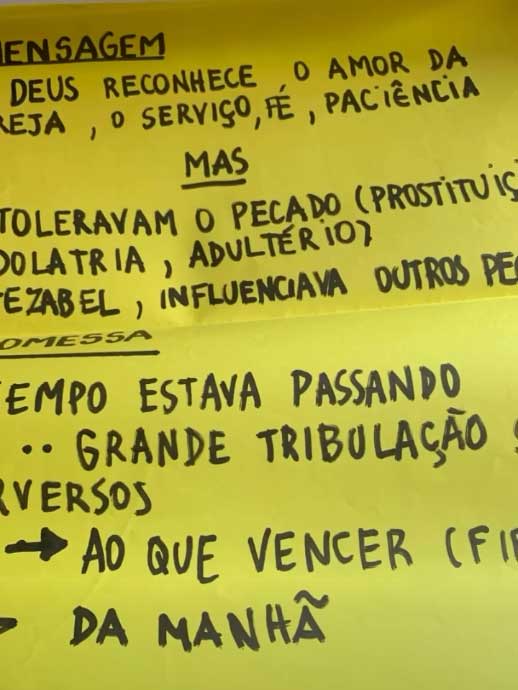 MENSAGEM
DEUS RECONHECE O AMOR DA
REJA, O SERVIÇO, FÉ, PACIÊNCIA
MAS
TOLERAVAM O PECADO (PROSTITUIÇ
DOLATRIA, ADULTÉRIO)
EZABEL, INFLUENCIAVA OUTROS PE
OMESSA
TEMPO ESTAVA PASSANDO
.. GRANDE TRIBULAÇÃO
RVERSOS
→ AO QUE VENCER (FI
DA MANHÃ